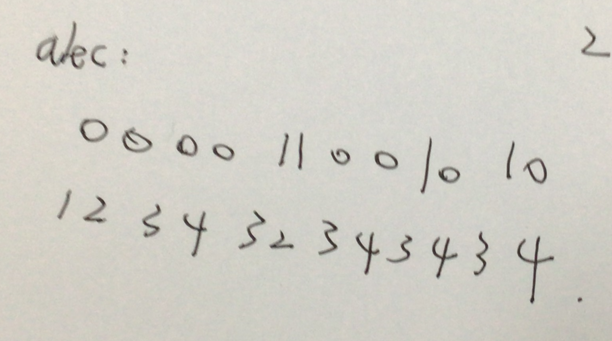 alec: 2
0 0 0 0 1 1 0 0 1 0 1 0
1 2 3 4 3 2 3 4 3 4 3 4 .